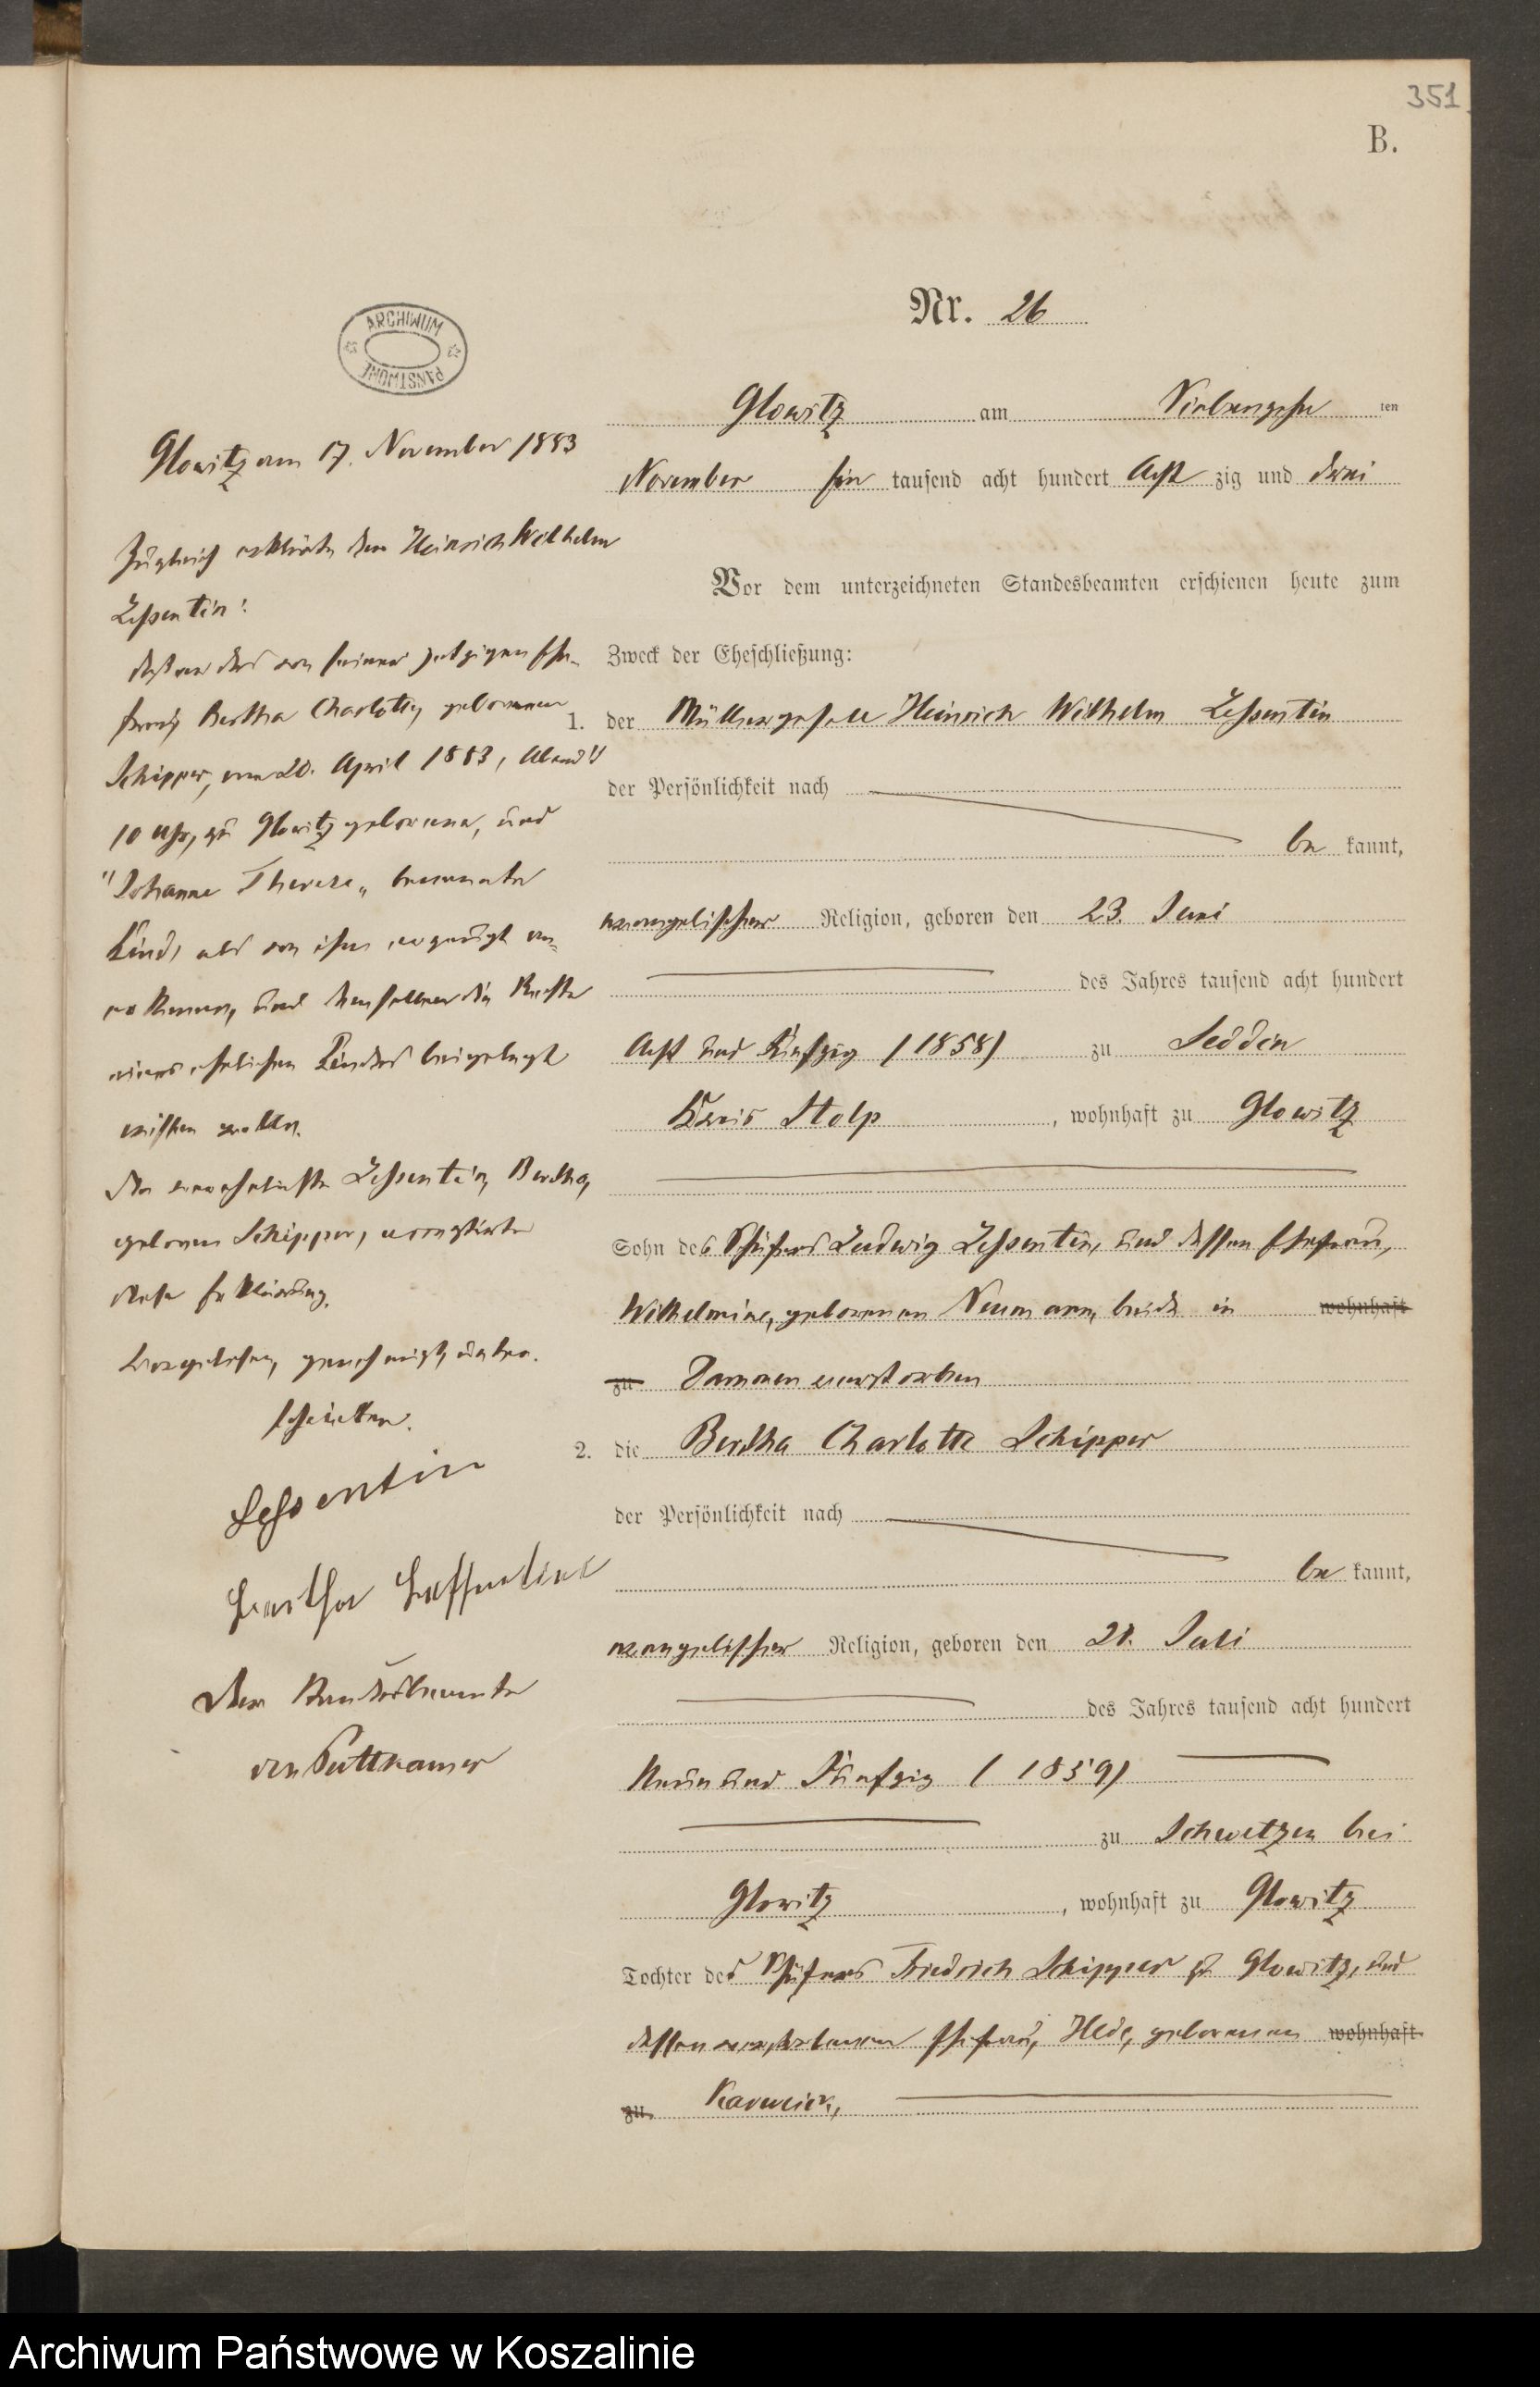 351
B.
Nr. 26
ARCHIWUM
PAŃSTWOWE
Glowitz am Siebenzehn ten
November Ein tausend acht hundert Acht zig und drei
Vor dem unterzeichneten Standesbeamten erschienen heute zum
Zweck der Eheschließung:
1. der Müllergeselle Heinrich Wilhelm Lessentin
der Persönlichkeit nach
be kannt,
evangelischer Religion, geboren den 23. Juni
des Jahres tausend acht hundert
Acht und Fünfzig (1858) zu Seddin
Kreis Stolp, wohnhaft zu Glowitz
Sohn des Schäfers Ludwig Lessentin, und dessen Ehefrau,
Wilhelmine, geborenen Neumann, beide in wohnhaft
zu Dammen verstorben
2. die Bertha Charlotte Schipper
der Persönlichkeit nach
be kannt,
evangelischer Religion, geboren den Juli
des Jahres tausend acht hundert
Neun und Fünfzig (1859)
zu Schwetzen bei
Glowitz, wohnhaft zu Glowitz
Tochter des Schäfers Friedrich Schipper zu Glowitz, und
dessen verstorbenen Ehefrau, geborenen wohnhaft
zu
Glowitz am 17. November 1883
Zugleich erklärte der Heinrich Wilhelm
Lessentin:
daß er das von seiner jetzigen Ehe-
frau, Bertha Charlotte, geborenen
Schipper, am 20. April 1883, Abends
10 Uhr, zu Glowitz geborene, und
"Johanne Therese" benannte
Kind, als von ihm erzeugt an-
erkennen, und demselben die Rechte
eines ehelichen Kindes beigelegt
wissen wolle.
Die verehelichte Lessentin, Bertha,
geborene Schipper, acceptirte
diese Erklärung.
Vorgelesen, genehmigt, unter-
schrieben.
Lessentin
Bertha Lessentin
Der Standesbeamte
von Puttkamer
Archiwum Państwowe w Koszalinie